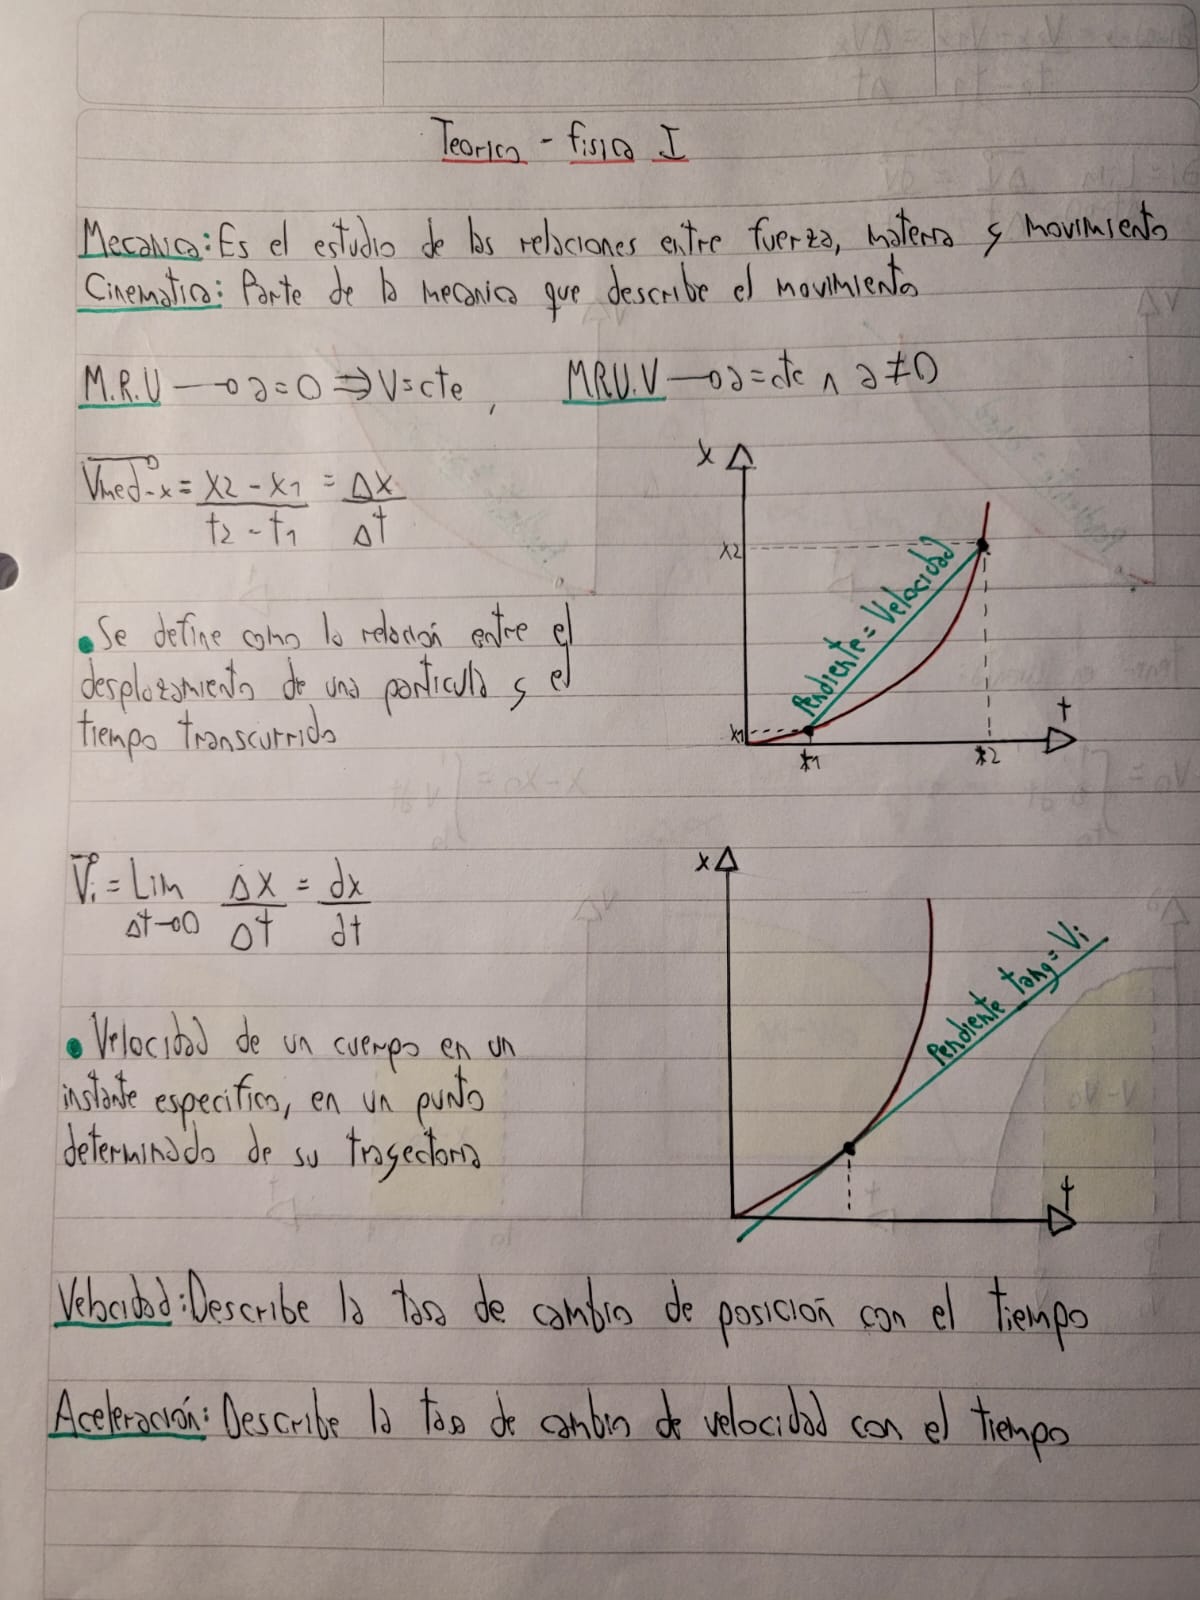 Teorico - fisica I
Mecanica: Es el estudio de las relaciones entre fuerza, materia y movimiento
Cinematica: Parte de la mecanica que describe el movimiento
M.R.U → a=0 ⇒ V=cte, MRU.V → a=cte ∧ a≠0
Vmed-x = x2 - x1 / t2 - t1 = Δx / Δt
x
x2
Pendiente = Velocidad
x1
t1
t2
t
• Se define como la relación entre el
desplazamiento de una particula y el
tiempo transcurrido
Vi = Lim Δt→0 Δx / Δt = dx / dt
x
Pendiente tang = Vi
t
• Velocidad de un cuerpo en un
instante especifico, en un punto
determinado de su trayectoria
Velocidad: Describe la tasa de cambio de posición con el tiempo
Aceleración: Describe la tasa de cambio de velocidad con el tiempo